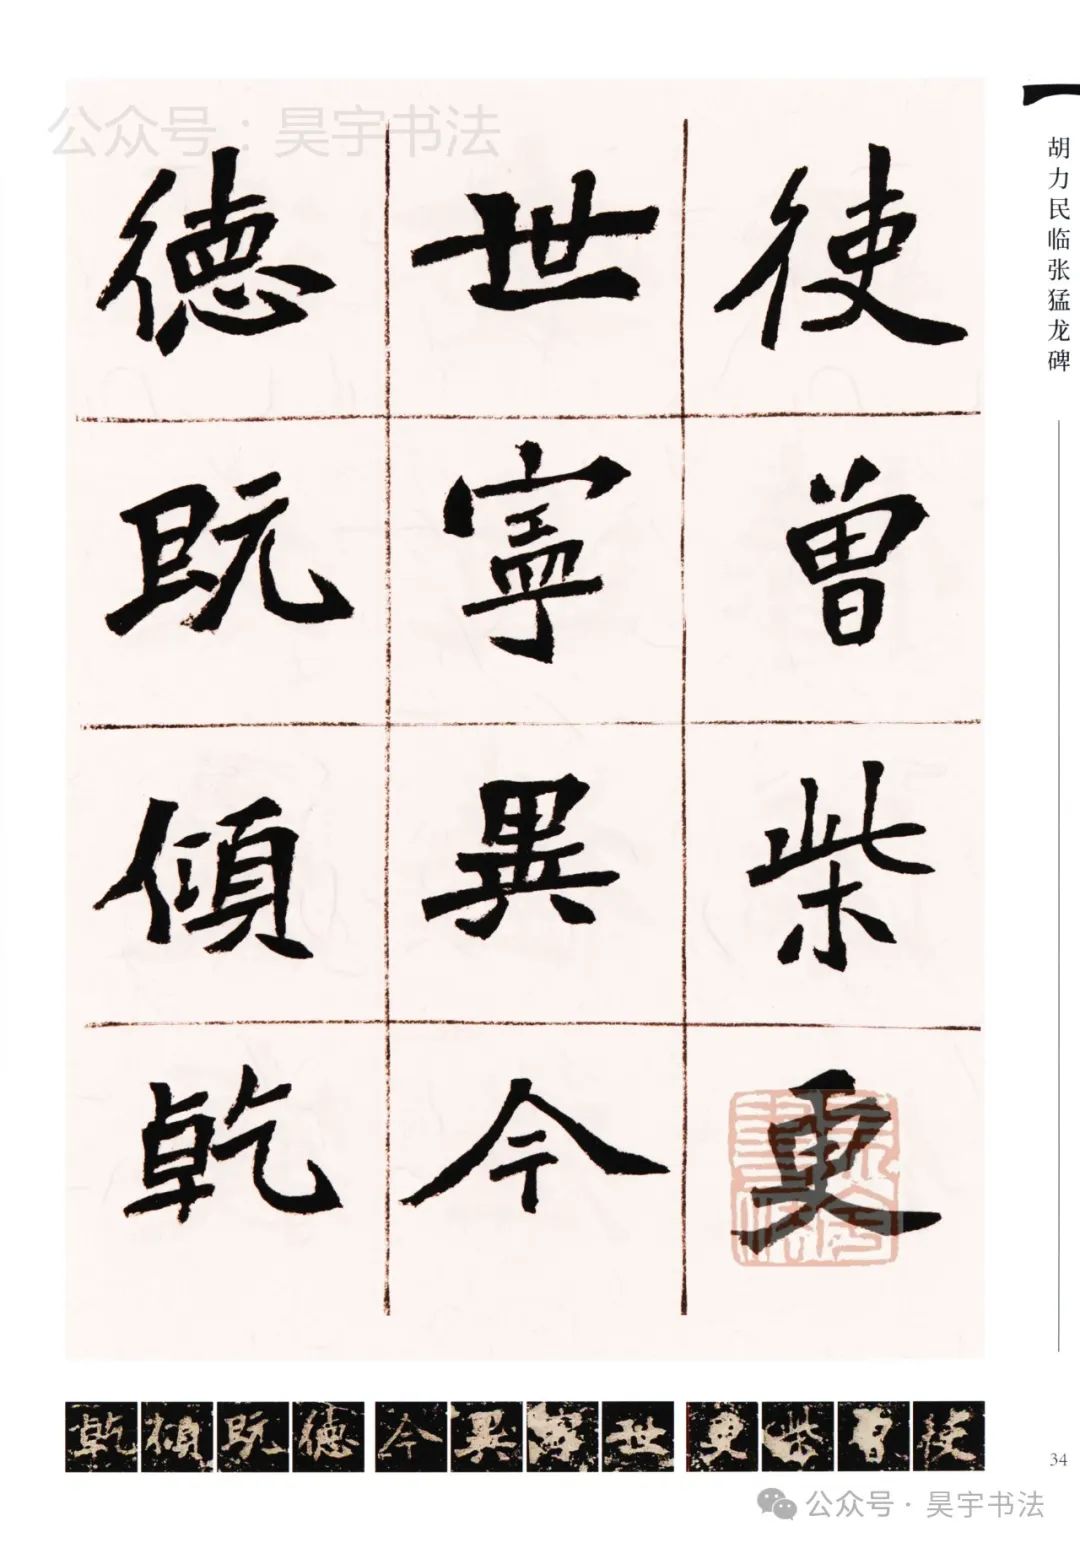 公众号：昊宇书法
胡力民临张猛龙碑
使曾柴更
世寧異今
德既傾乾
乾傾既德今異寧世更柴曾使
34
公众号·昊宇书法